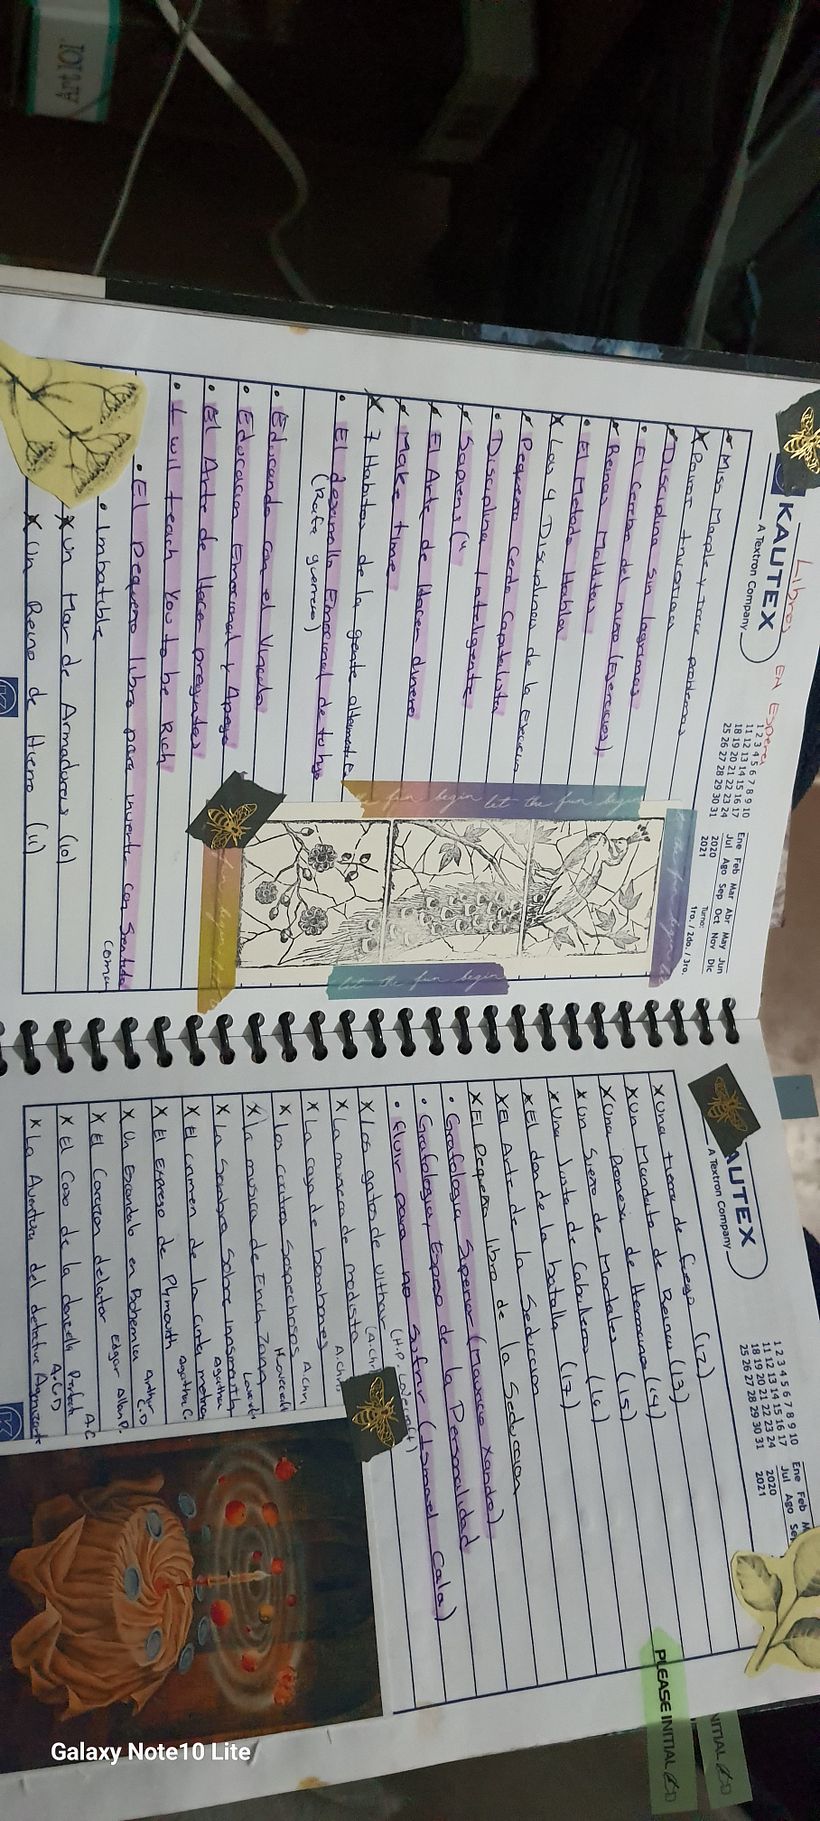 Art 101
Libros EN Espera
KAUTEX
A Textron Company
1 2 3 4 5 6 7 8 9 10
11 12 13 14 15 16 17
18 19 20 21 22 23 24
25 26 27 28 29 30 31
Ene Feb Mar Abr May Jun
Jul Ago Sep Oct Nov Dic
2020 2021
Turno:
1ro. / 2do. / 3ro.
Miss Marple y trece problemas
X Poirot Investiga
Disciplina sin lagrimas
El Cerebro del niño (Ejercicios)
Reinas Malditas
El Metodo Hábla
X Las 4 Disciplinas de la
Pequeño Cerdo Capitalista
Disciplina Inteligente
Sapiens
El Arte de Hacer dinero
Make time
X 7 Habitos de la gente
El desarrollo Emocional de tu hijo
(Rafa guerrero)
Educando con el Vinculo
Educacion Emocional y Apego
El Arte de Hacer preguntas
I will teach You to be Rich
El Pequeño libro para invertir con Sentido
Comun
Imbatible
X Un Mar de Armaduras (10)
X Un Reino de Hierro (11)
let the fun begin let the fun begin
let the fun begin
AUTEX
A Textron Company
1 2 3 4 5 6 7 8 9 10
11 12 13 14 15 16 17
18 19 20 21 22 23 24
25 26 27 28 29 30 31
Ene Feb M
Jul Ago Sep
2020
2021
X Una tierra de fuego (12)
X Un Mandato de Reinas (13)
X Una promesa de Hermanos (14)
X Un Sueño de Mortales (15)
X Una Justa de Caballeros (16)
X El don de la batalla (17)
X El Arte de la Seduccion
X El Pequeño libro de la Seduccion
Grafologia Superior (Mauricio Xandro)
Grafologia, Espejo de la Personalidad
Fluir para no Sufrir (Ismael Cala)
X Los gatos de Ulthar (H.P. Lovecraft)
X La muñeca de modista (A.Chri
X La caja de bombones A.Chri
X Los cuatro Sospechosos A.Chri
X La musica de Erich Zann H.Lovecraft
X La Sombra Sobre Innsmouth Lovecraft
X El crimen de la cinta metrica Agatha
X El Expreso de Plymouth Agatha C.
X Un Escandalo en Bohemia Arthur C.D
X El Corazon delator Edgar Allan P.
X El Caso de la doncella Perfecta A.C
X La Aventura del detective A.C.D
PLEASE INITIAL
NITIAL
Galaxy Note10 Lite